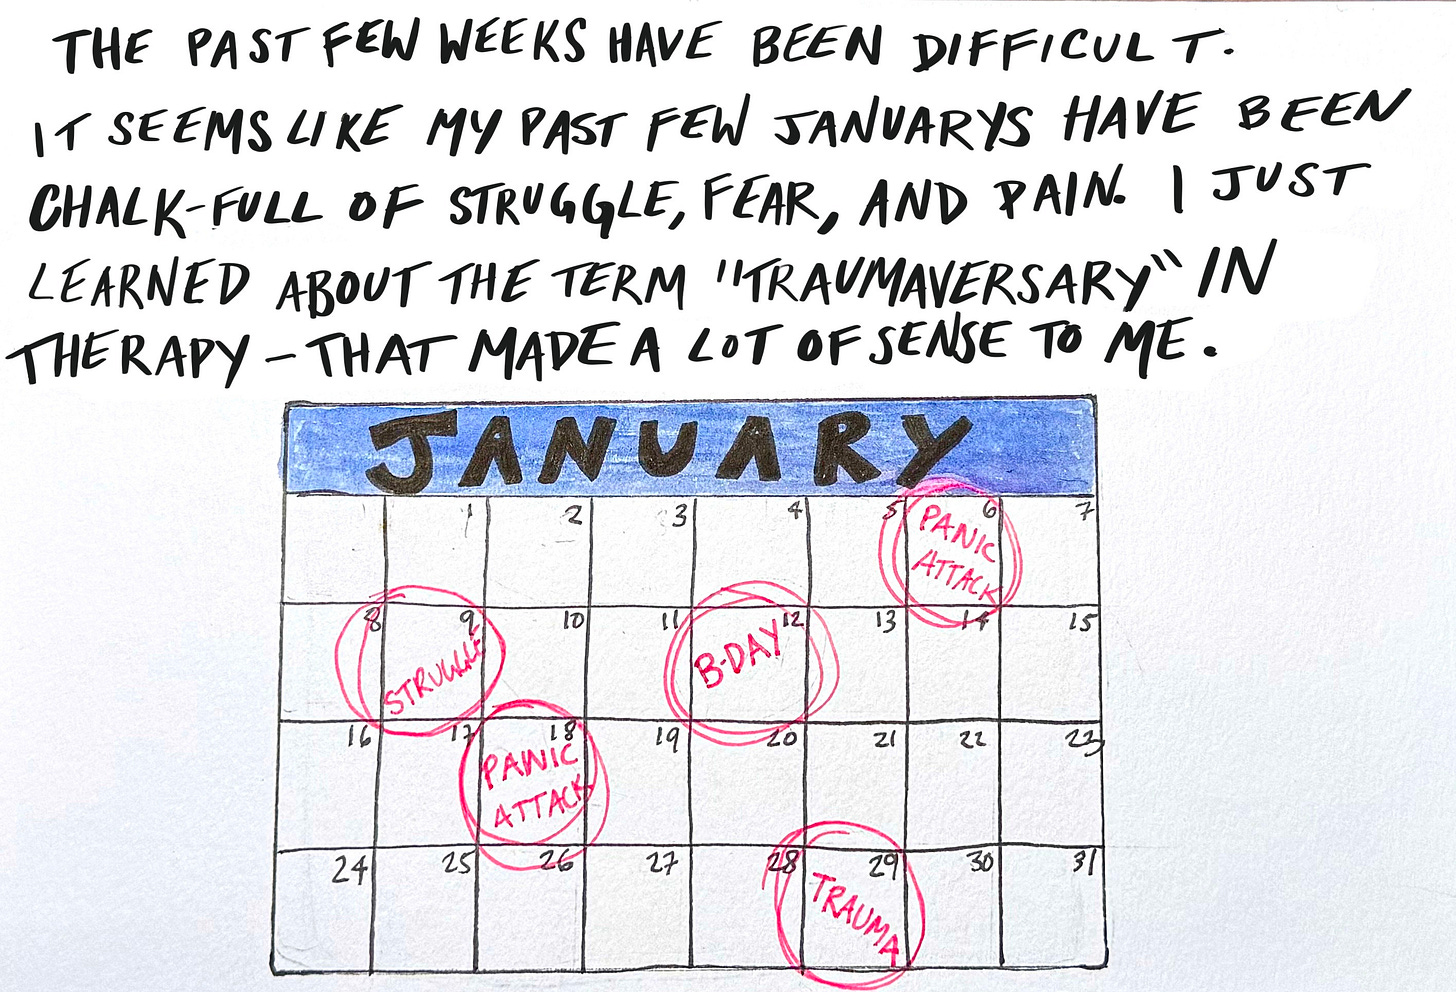 THE PAST FEW WEEKS HAVE BEEN DIFFICULT.
IT SEEMS LIKE MY PAST FEW JANUARYS HAVE BEEN
CHALK-FULL OF STRUGGLE, FEAR, AND PAIN. I JUST
LEARNED ABOUT THE TERM "TRAUMAVERSARY" IN
THERAPY – THAT MADE A LOT OF SENSE TO ME.
JANUARY
1 2 3 4 5 6 7
PANIC
ATTACK
8 9 10 11 12 13 14 15
STRUGGLE
B-DAY
16 17 18 19 20 21 22 23
PANIC
ATTACK
24 25 26 27 28 29 30 31
TRAUMA